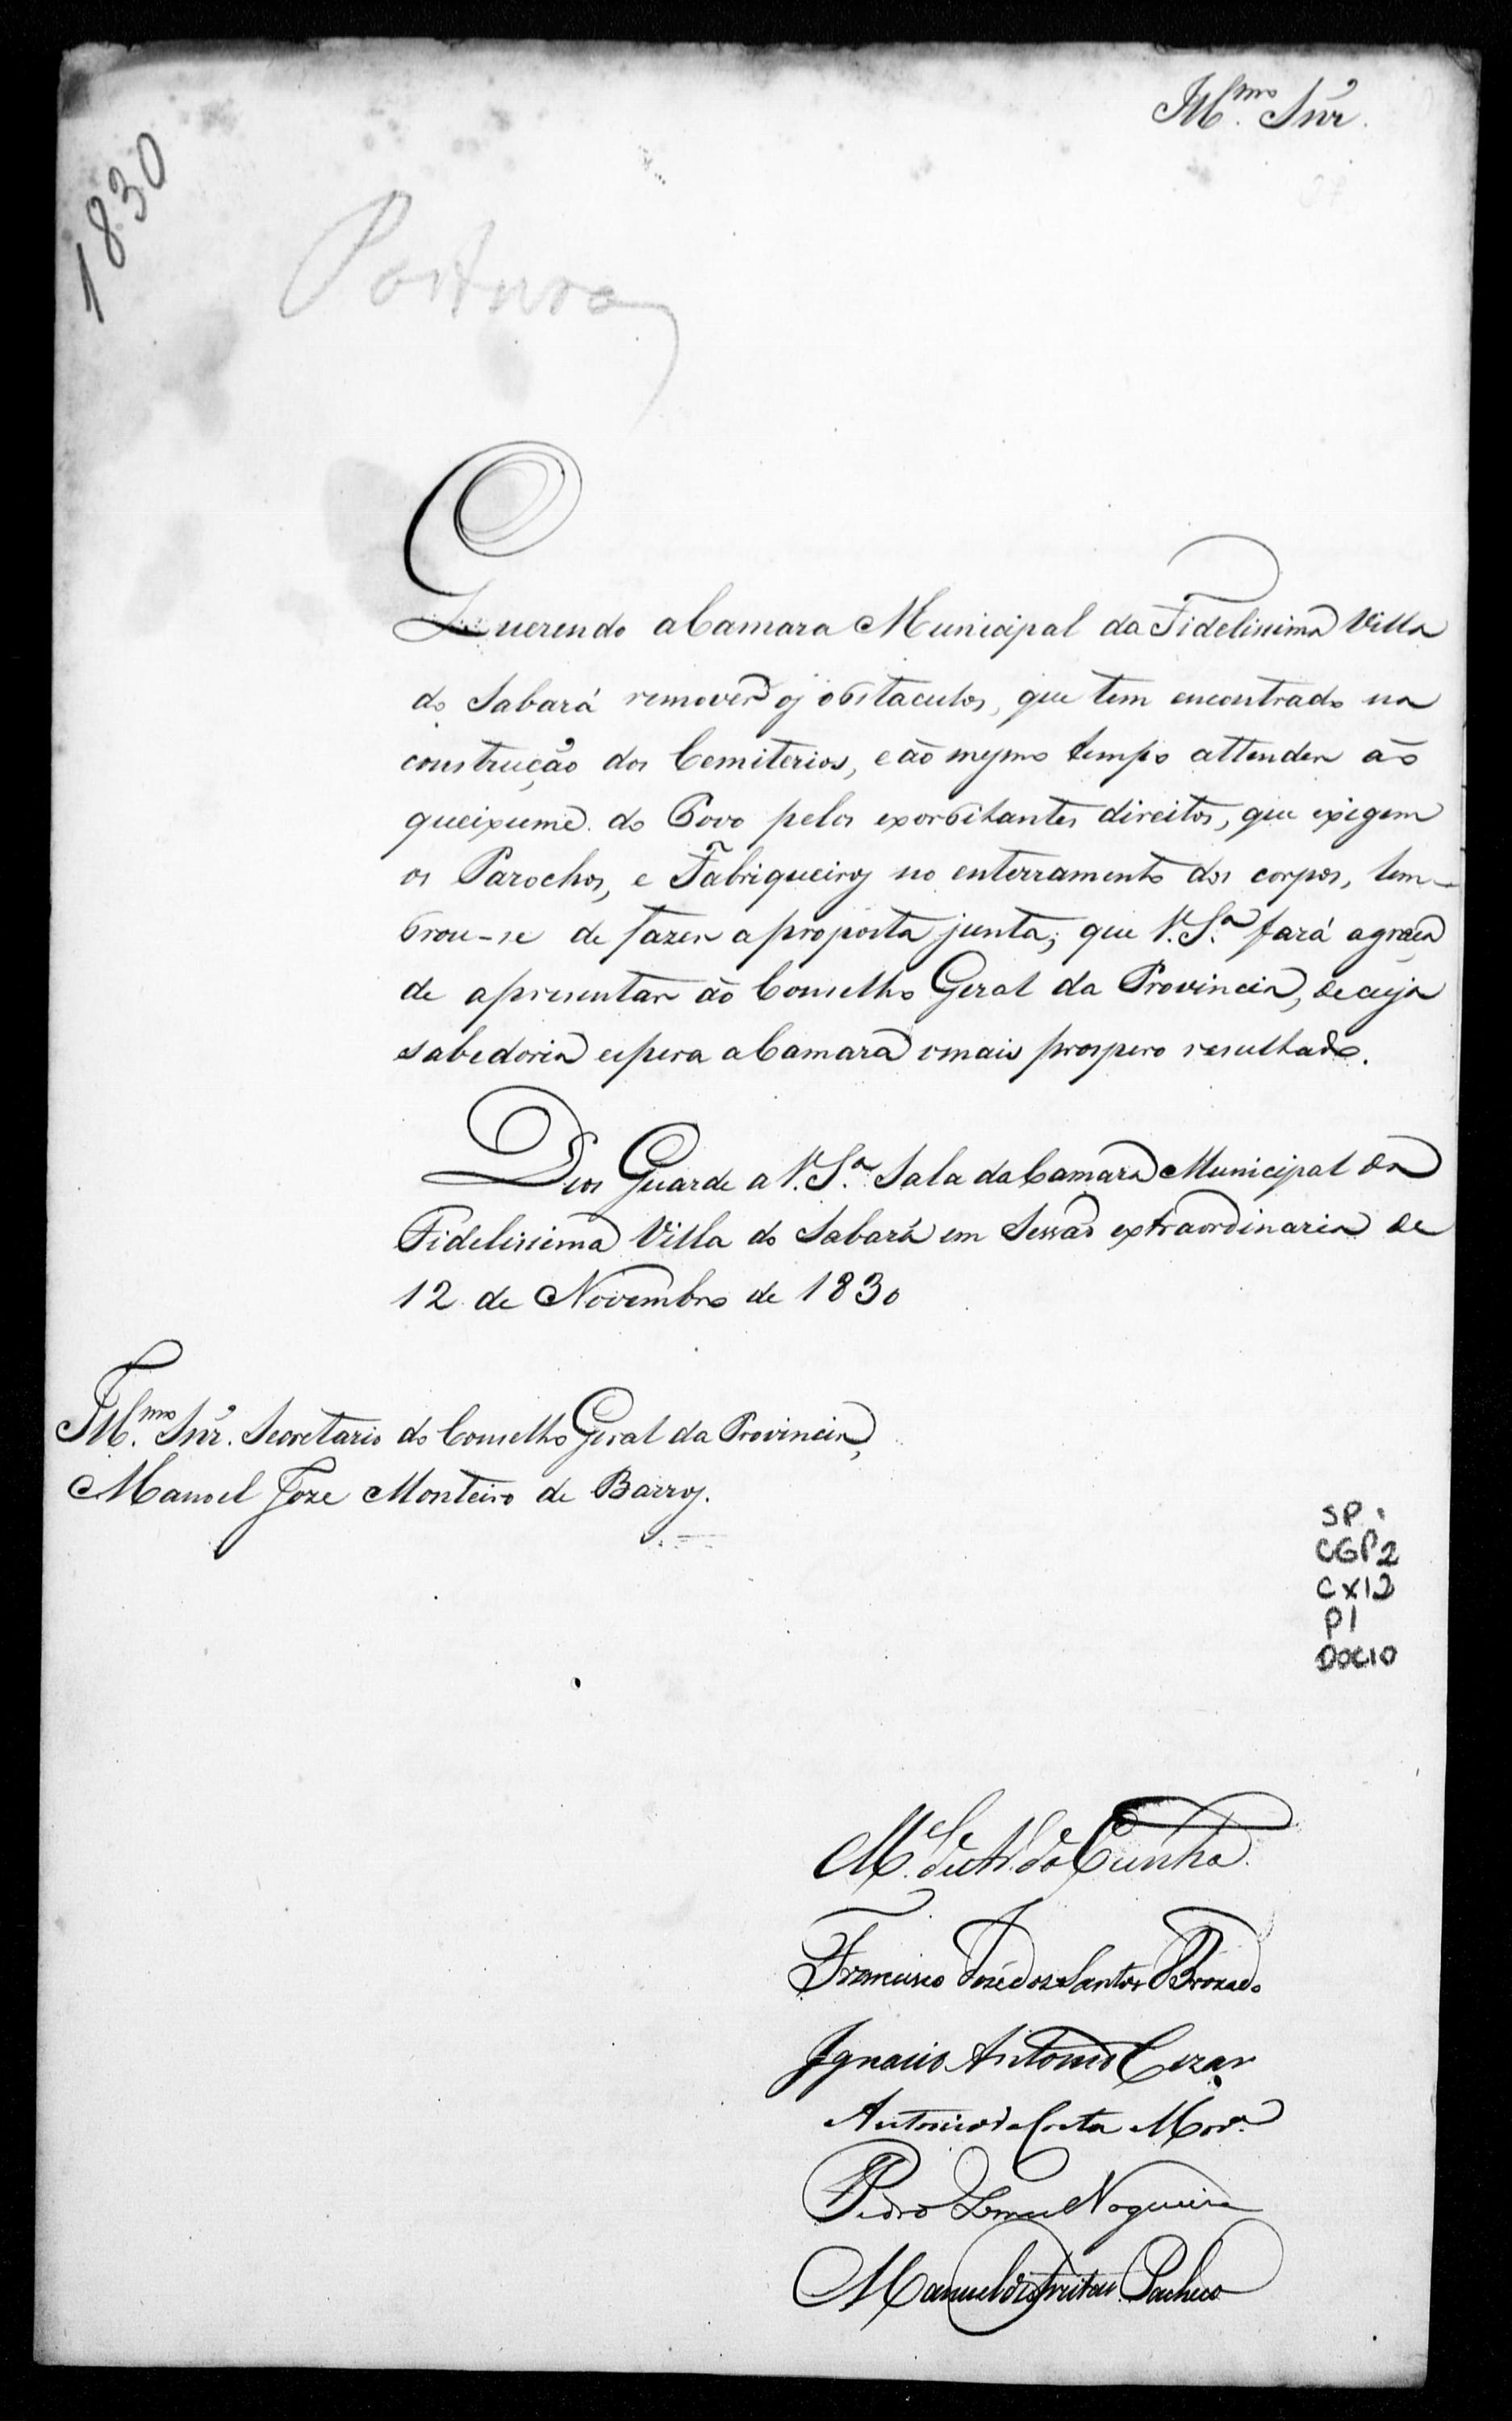 Ill.mo Snr.
1830
Postura
Querendo a Camara Municipal da Fidelissima Villa
do Sabará remover os obstaculos, que tem encontrado na
construcção dos Cemiterios, e aõ mesmo tempo attender aõ
queixume do Povo pelos exorbitantes direitos, que exigem
os Parochos, e Fabriqueiros no enterramento dos corpos, lem-
brou-se de fazer a proposta junta; que V. S.a fará a graça
de apresentar aõ Conselho Geral da Provincia, de cuja
sabedoria espera a Camara o mais prospero resultado.
Deos Guarde a V. S.a Sala da Camara Municipal da
Fidelissima Villa do Sabará em Sessaõ extraordinaria de
12 de Novembro de 1830
Ill.mo Snr. Secretario do Conselho Geral da Provincia,
Manoel Joze Monteiro de Barros.
SP.
CGP2
CX12
P1
DOC10
M.el da Cunha
Francisco José dos Santos Brochado
Ignacio Antonio Cezar
Antonio da Costa Mor.a
Pedro Nogueira
Manuel de Freitas Pacheco